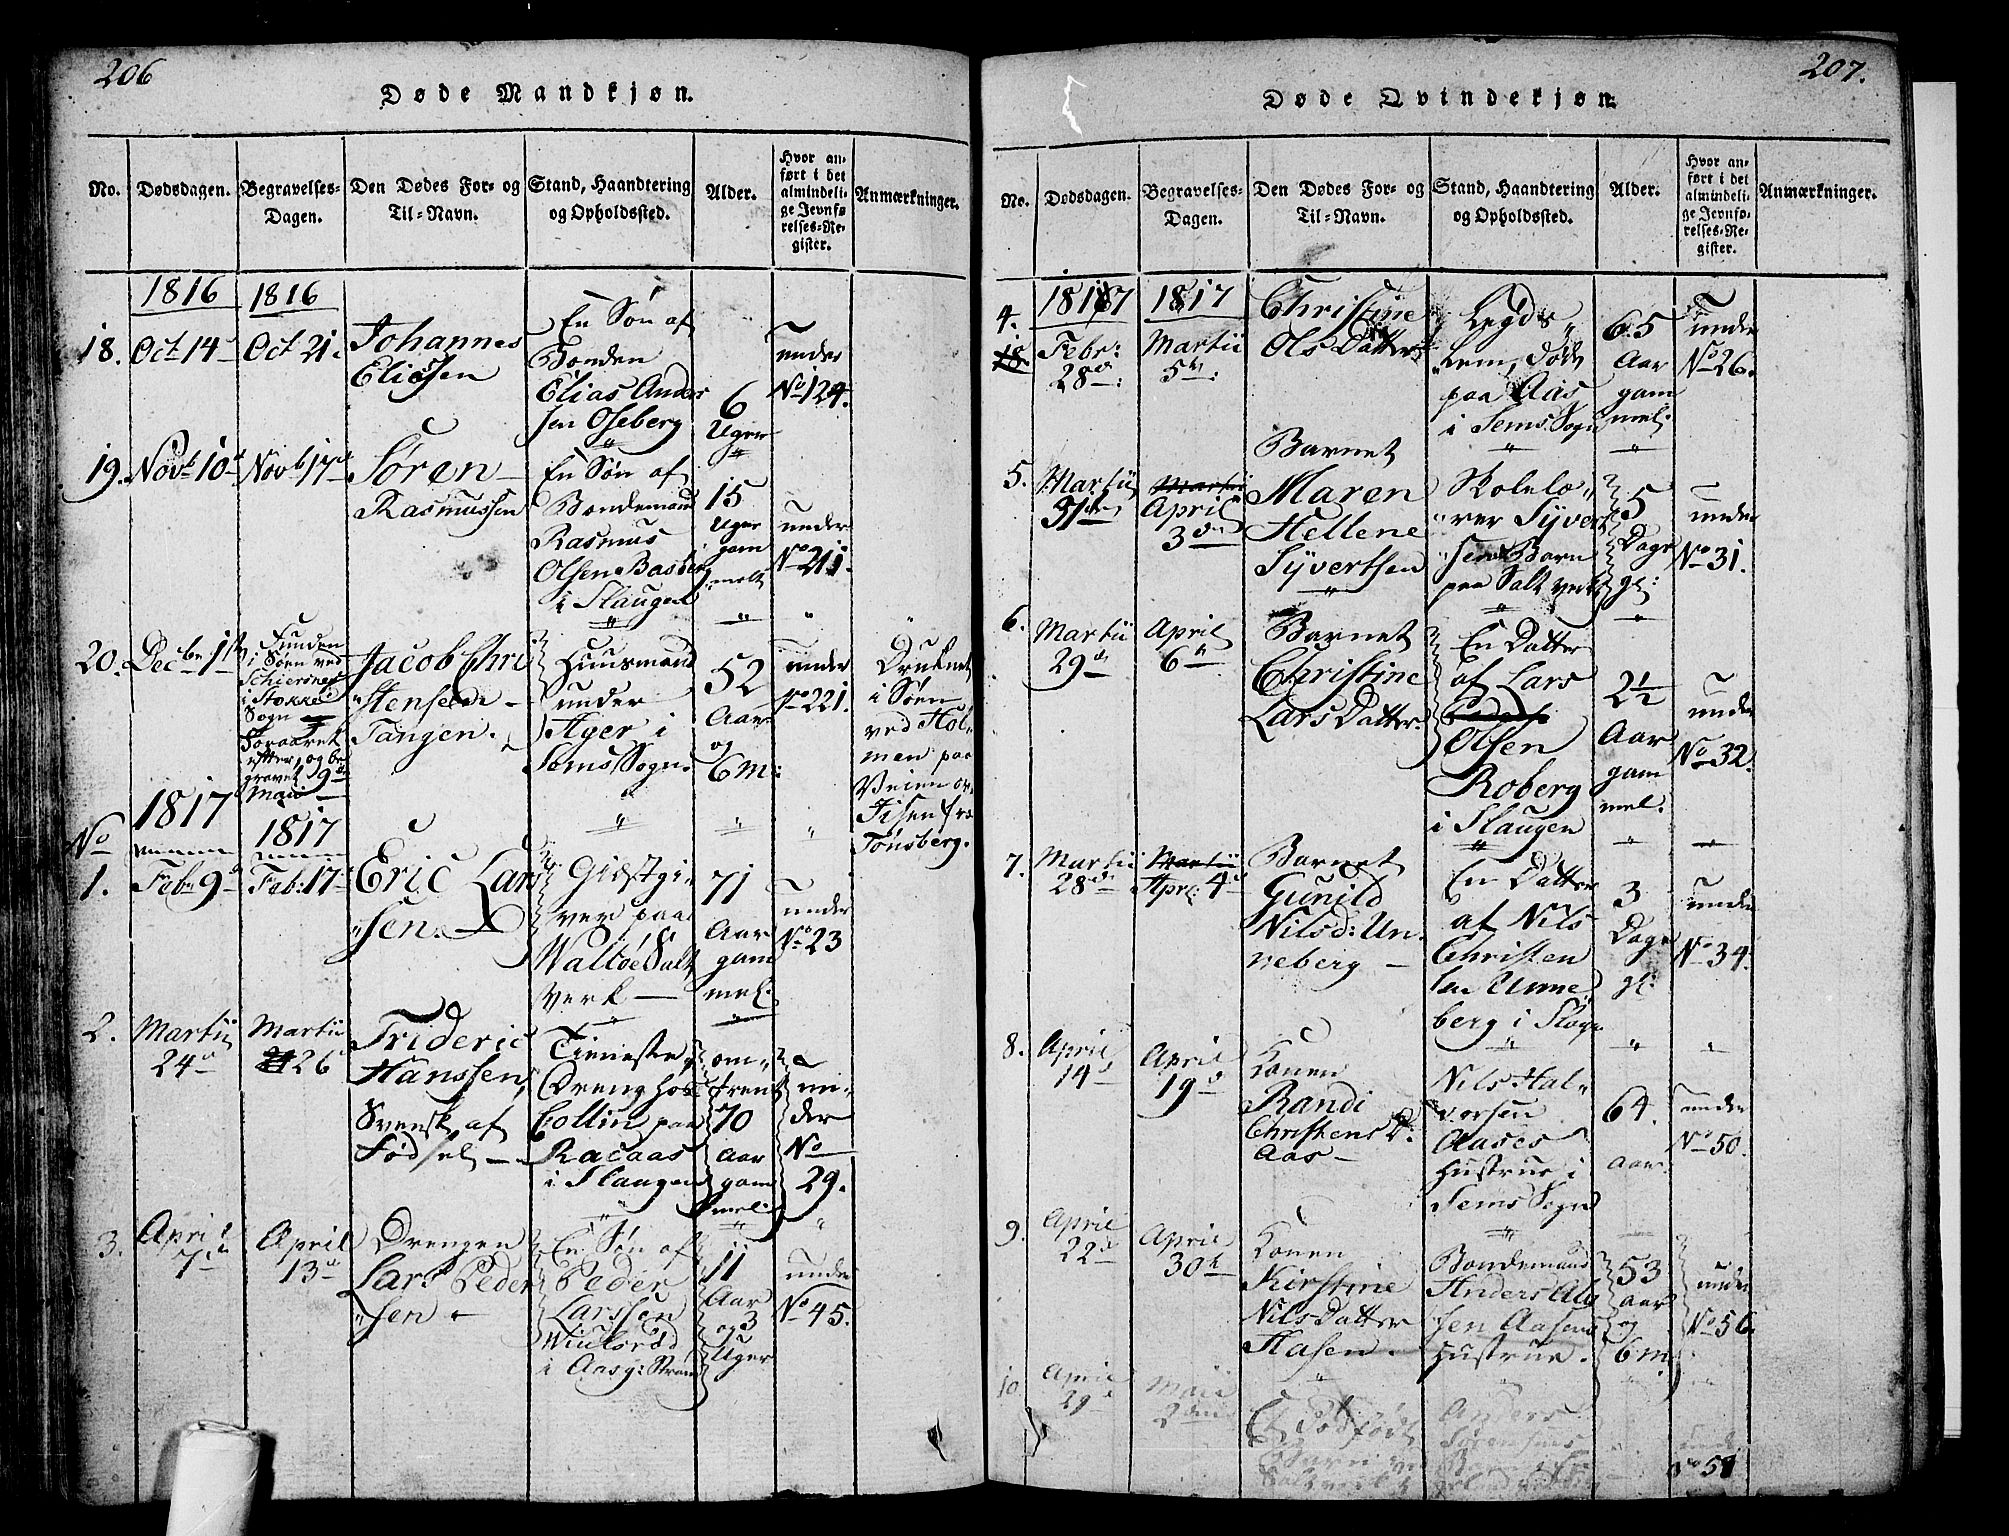 206
Døde Mandkjøn.
No.
Dødsdagen.
Begravelses-
Dagen.
Den Dødes For- og
Til-Navn.
Stand, Haandtering
og Opholdssted.
Alder.
Hvor an-
ført i det
almindeli-
ge Jevnfø-
relses-Re-
gister.
Anmærkninger.
1816
1816
18.
Oct. 14
Oct 21.
Johannes
Eliesen
En Søn af
Bonden
Elias Ander
sen Oseberg
6
Uger
under
No 124.
19.
Novb 10
Novb 17
Sören
Rasmussen
En Søn af
Bondemand
Rasmus
Olsen Basberg
i Slaugen
15
Uger
gam
melt
under
No 211.
20.
Decbr 1
Funden
i Søen ved
i Stokke
Sogn
Foraaret
efter, og be
gravet 9
Maii
Jacob Chri
stensen
Tangen.
Huusmand
under
Ager i
Sems Sogn.
52
Aar
og
6 m:
under
No 221.
Druknet
i Søen
ved Hol
men paa
Veien
fra
Tønsberg.
1817
1817
No
1.
Feb. 9
Feb: 17
Eric Lar
sen.
Giestgi
ver paa
Walløe Salt
verk
71
Aar
gam
mel.
under
No 23
2.
Martii
24
Martii
26
Frideric
Hanssen,
Svensk af
Fødsel
Tieneste
Dreng hos
Collin paa
Racaas
i Slaugen
om
trent
70
aar
gam
mel.
un
der
No
29.
3.
April
7
April
13
Drengen
Lars Peder
sen
En Søn af
Peder
Larssen
i Aasg: Strand
11
Aar
og 3
Uger
under
No 45.
207.
Døde Qvindekjøn.
No.
Dødsdagen.
Begravelses-
Dagen.
Den Dødes For- og
Til-Navn.
Stand, Haandtering
og Opholdssted.
Alder.
Hvor an-
ført i det
almindeli-
ge Jevnfø-
relses-Re-
gister.
Anmærkninger.
4.
18
1817
1817
Febr:
28
Martii
5
Christine
Ols Datter
Legds
lem, døde
paa Aas
i Sems Sogn
65
Aar
gam
mel.
under
No 26.
5.
Martii
31
Martii
April
3
Barnet
Maren
Hellene
Syvertsen
Skolelæ
rer Syvert
sens Barn
paa Salt verk
5
Dage
gl:
under
No 31.
6.
Martii
29
April
6
Barnet
Christine
Lars Datter
En Datter
af Lars
Olsen
Roberg
i Slaugen
2½
Aar
gam
mel.
under
No 32.
7.
Martii
28
Martii
Apri: 4
Barnet
Gunild
Nilsd: Un
neberg
En Datter
af Nils
Christen
sen Unne
berg i
3
Dage
gl:
under
No 34.
8.
April
14
April
19
Konen
Randi
Christens D:
Aas
Nils Hal
vorsen
Aases
Hustrue i
Sems Sogn
64.
aar.
under
No 50.
9.
April
22
April
30
Konen
Kirstine
Nils Datter
Hasen.
Bondemand
Anders
sen Aasens
Hustrue.
53
aar
og
6 m
under
No 56.
10
April
29
Maii
2
Et Dødfødt
Barn
Saltverket
Anders
Sørensens
Barn
under
No 58